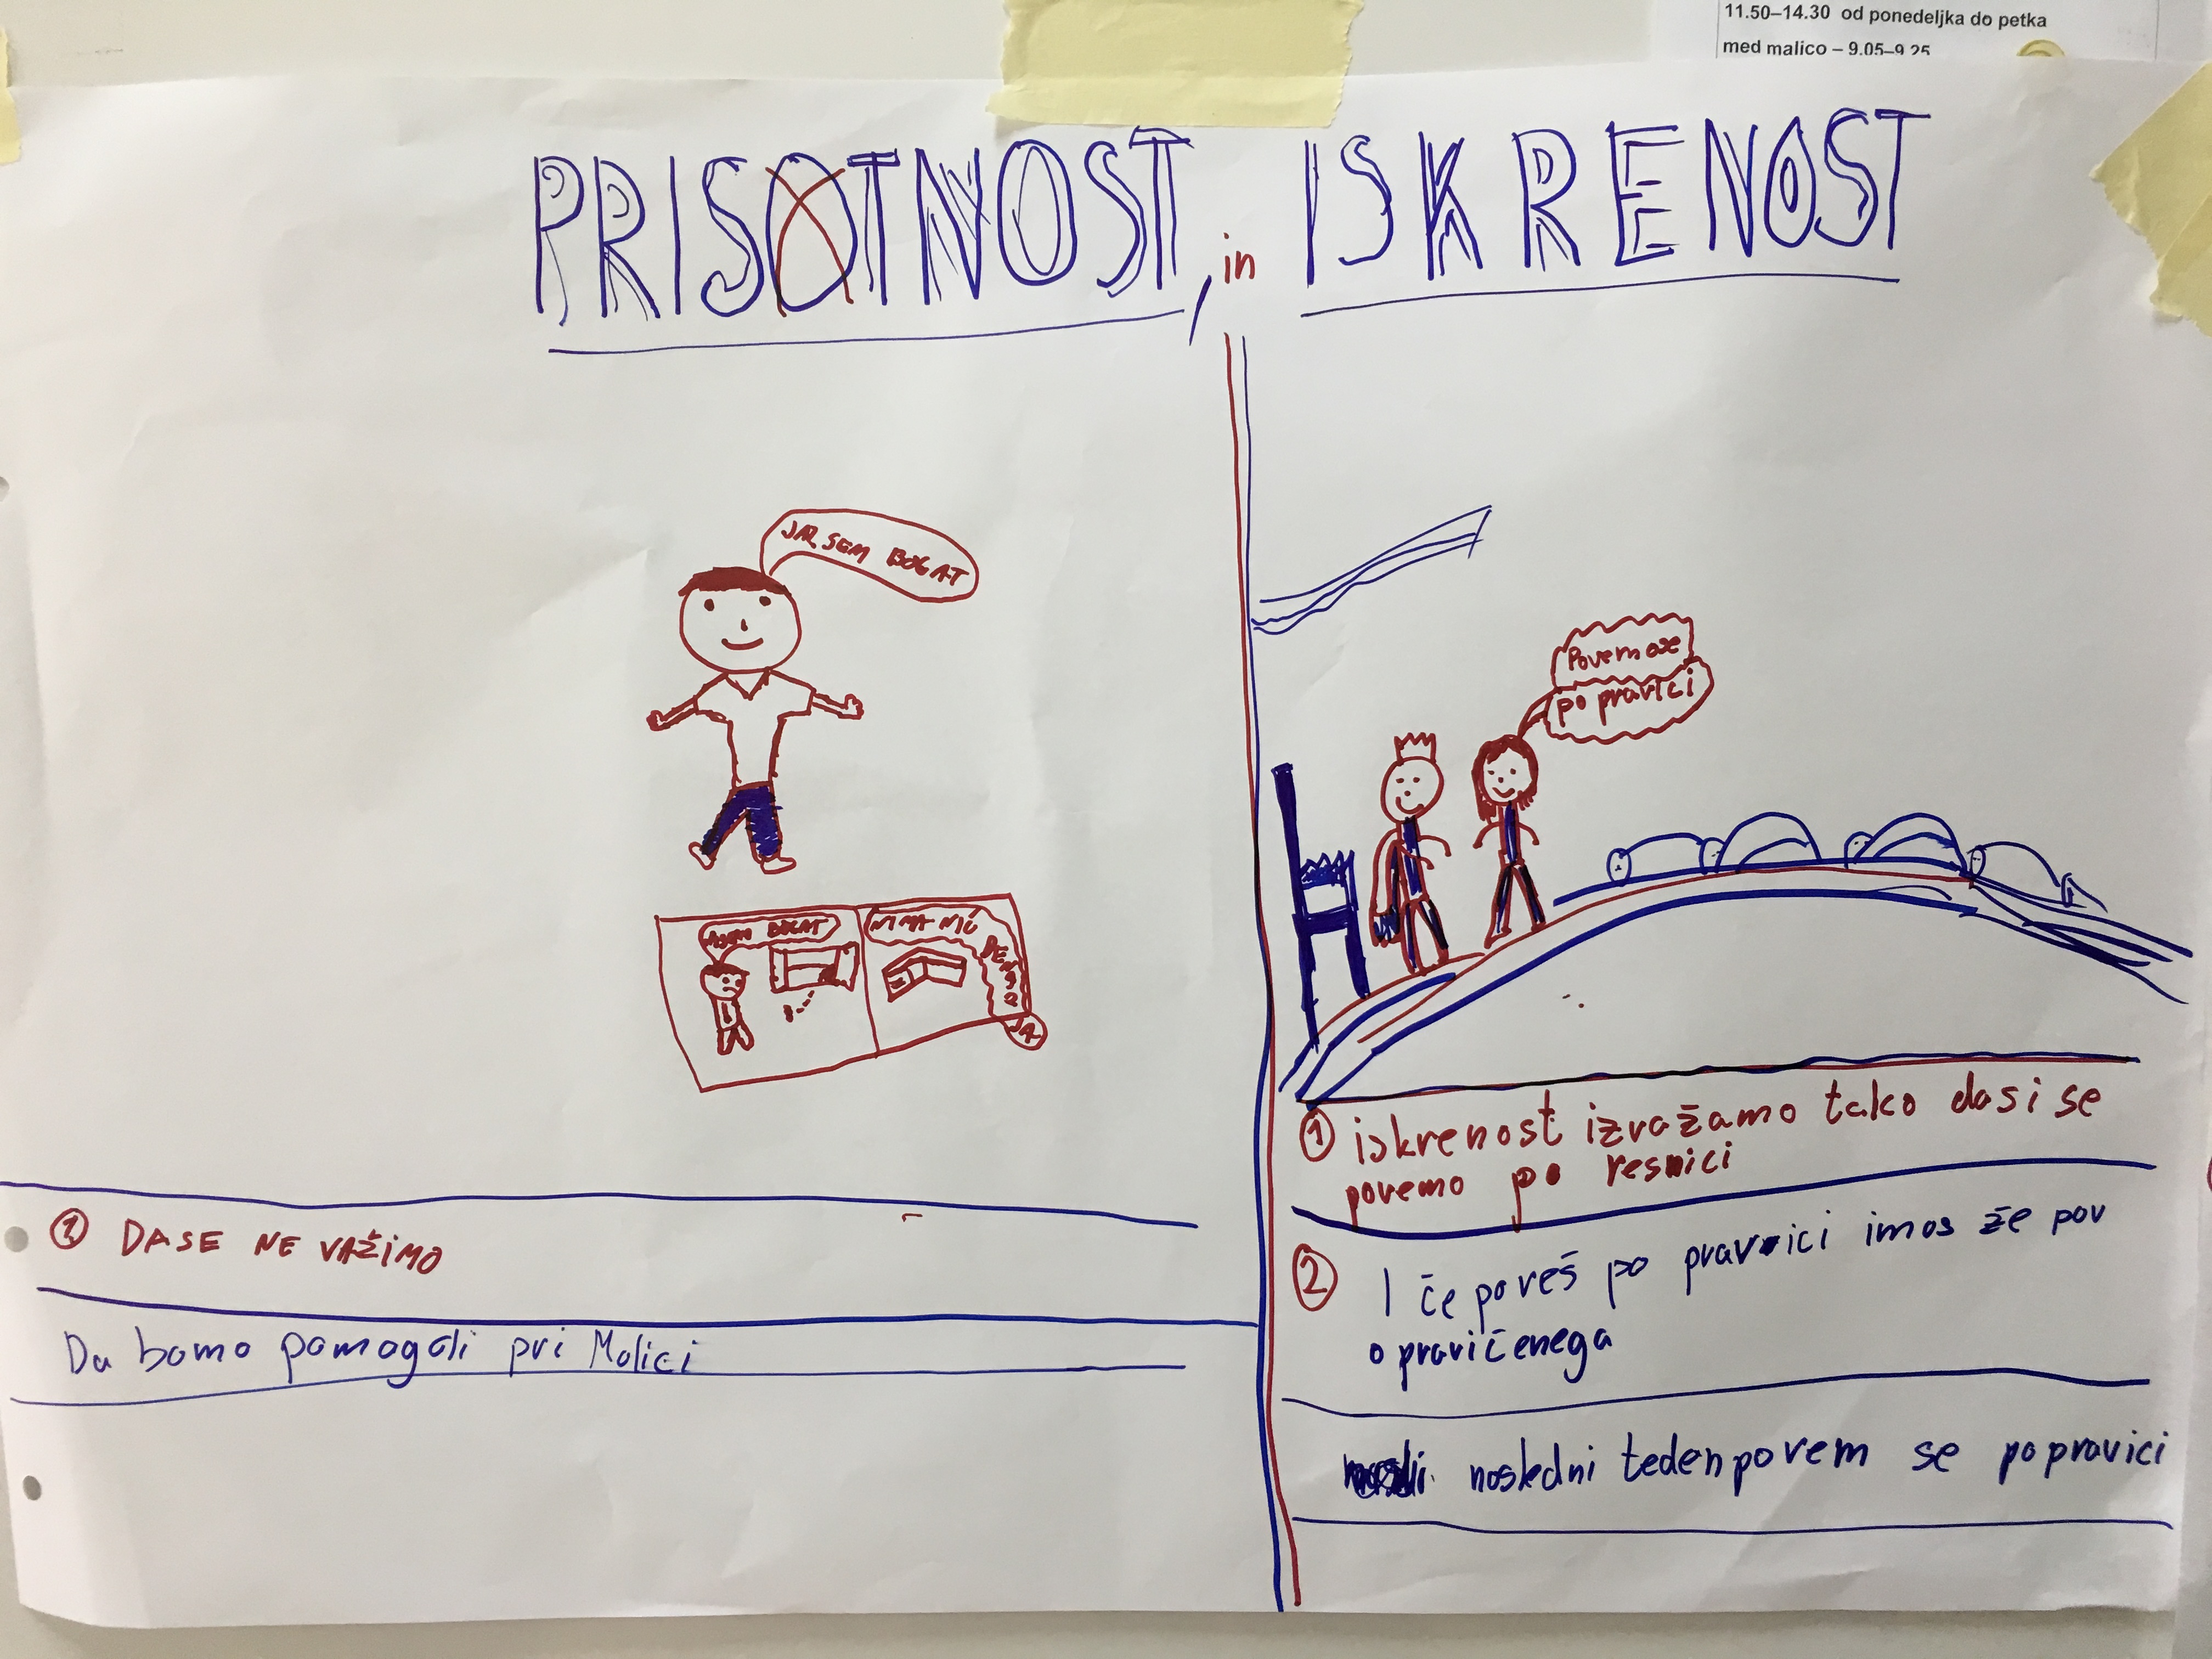 11.50–14.30 od ponedeljka do petka
med malico – 9.05–9.25
PRISOTNOST, in ISKRENOST
JAZ SEM BOGAT
BOGAT
NIMA NIČ
DENARJA
Povemo se
po pravici
① iskrenost izražamo tako dasi se
povemo po resnici
① DASE NE VAŽIMO
② I če poveš po pravici imos že pov
opravičenega
Da bomo pomogali pri Malici
nosledni teden povem se po pravici